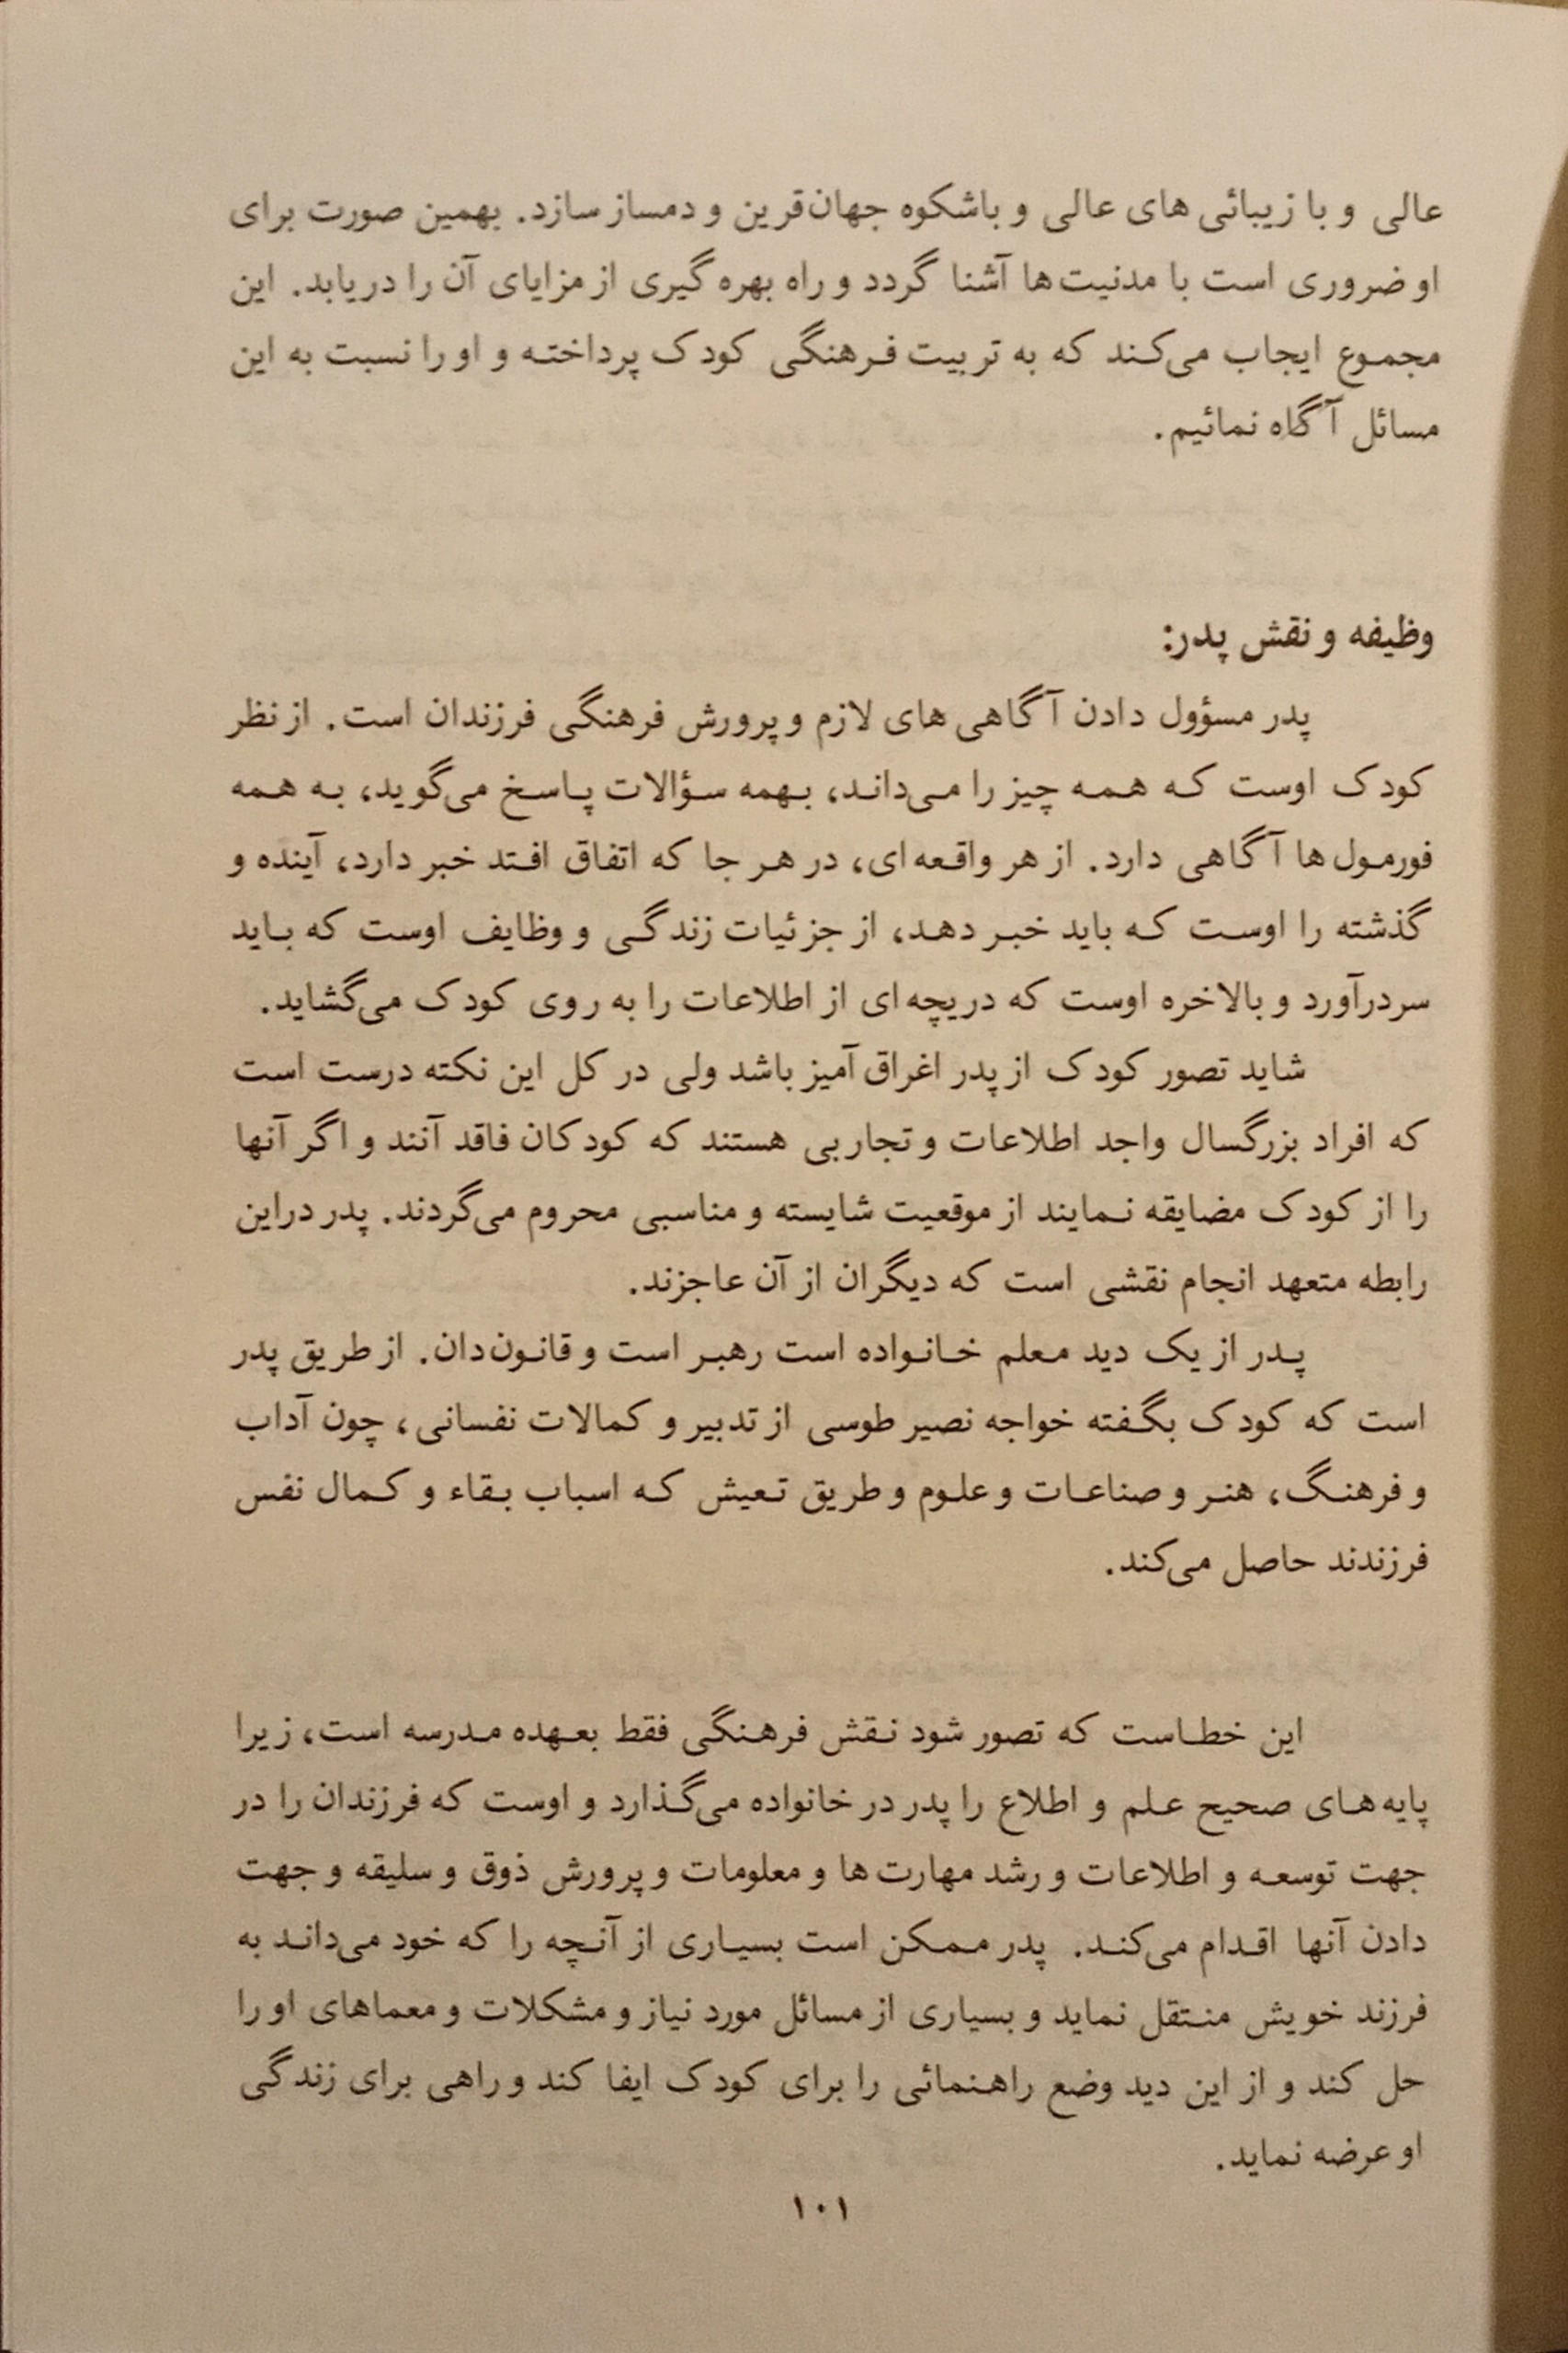 عالی و با زیبائی های عالی و باشکوه جهان‌قرین و دمساز سازد. بهمین صورت برای
او ضروری است با مدنیت‌ها آشنا گردد و راه بهره گیری از مزایای آن را دریابد. این
مجموع ایجاب می‌کند که به تربیت فرهنگی کودک پرداخته و او را نسبت به این
مسائل آگاه نمائیم.
وظیفه و نقش پدر:
پدر مسؤول دادن آگاهی های لازم و پرورش فرهنگی فرزندان است. از نظر
کودک اوست که همه چیز را می‌داند، بهمه سؤالات پاسخ می‌گوید، به همه
فورمول‌ها آگاهی دارد. از هر واقعه‌ای، در هر جا که اتفاق افتد خبر دارد، آینده و
گذشته را اوست که باید خبر دهد، از جزئیات زندگی و وظایف اوست که باید
سردرآورد و بالاخره اوست که دریچه‌ای از اطلاعات را به روی کودک می‌گشاید.
شاید تصور کودک از پدر اغراق آمیز باشد ولی در کل این نکته درست است
که افراد بزرگسال واجد اطلاعات و تجاربی هستند که کودکان فاقد آنند و اگر آنها
را از کودک مضایقه نمایند از موقعیت شایسته و مناسبی محروم می‌گردند. پدر دراین
رابطه متعهد انجام نقشی است که دیگران از آن عاجزند.
پدر از یک دید معلم خانواده است رهبر است و قانون‌دان. از طریق پدر
است که کودک بگفته خواجه نصیر طوسی از تدبیر و کمالات نفسانی، چون آداب
و فرهنگ، هنر و صناعات و علوم و طریق تعیش که اسباب بقاء و کمال نفس
فرزندند حاصل می‌کند.
این خطاست که تصور شود نقش فرهنگی فقط بعهده مدرسه است، زیرا
پایه‌های صحیح علم و اطلاع را پدر در خانواده می‌گذارد و اوست که فرزندان را در
جهت توسعه و اطلاعات و رشد مهارت‌ها و معلومات و پرورش ذوق و سلیقه و جهت
دادن آنها اقدام می‌کند. پدر ممکن است بسیاری از آنچه را که خود می‌داند به
فرزند خویش منتقل نماید و بسیاری از مسائل مورد نیاز و مشکلات و معماهای او را
حل کند و از این دید وضع راهنمائی را برای کودک ایفا کند و راهی برای زندگی
او عرضه نماید.
۱۰۱